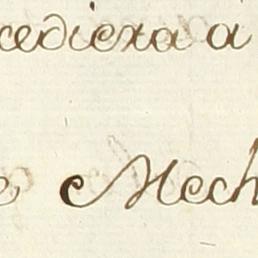 cediera a
e Mech